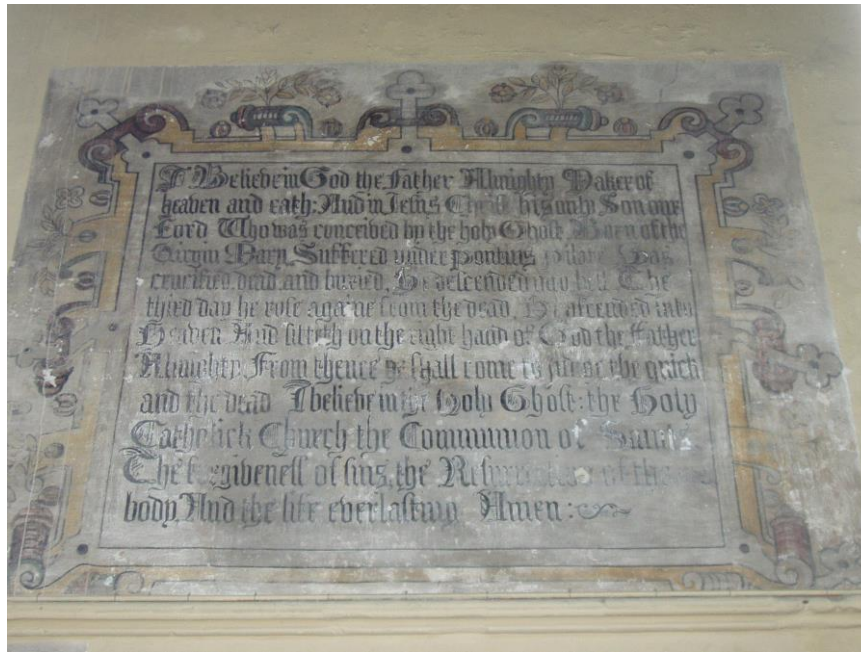 I Believe in God the Father Almighty Maker of
heaven and eath: And in Jesus Christ his only Son our
Lord Who was conceived by the holy Ghost, Born of the
Virgin Mary, Suffered under pontius pilate, Was
crucified, dead, and buried, He descended into hell The
third day he rose againe from the dead, He ascended into
Heaven And sitteth on the right hand of God the Father
Almighty, From thence he shall come to judge the quick
and the dead I believe in the Holy Ghost: the Holy
Catholick Church the Communion of Saints
The forgiveness of sins, the Resurrection of the
body, And the life everlasting Amen: